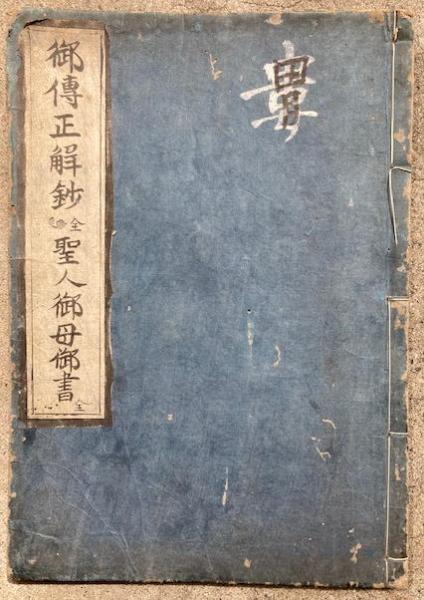 御傳正觧鈔全聖人御母御書全